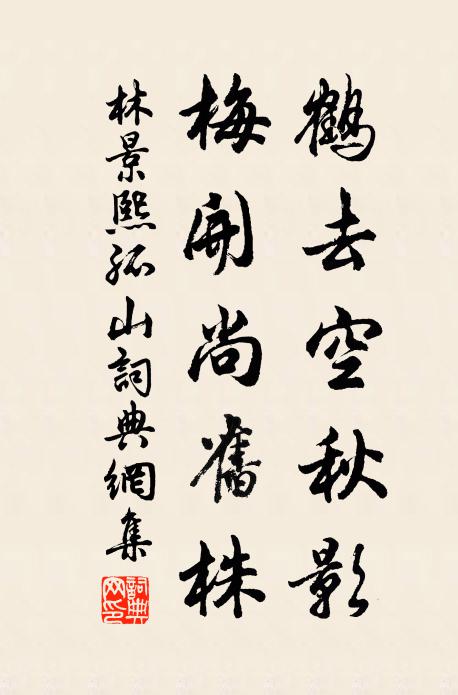 鶴去空秋影
梅開尚舊株
林景熙孤山詞典網集
詞典网印